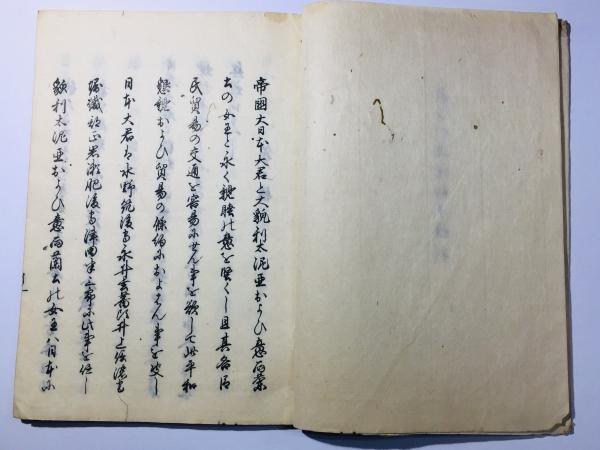 帝國大日本大君と大貌利太泥亜およひ意而蘭
土の女王と永く親睦の意を堅くし且其各臣
民貿易の交通を容易にせん事を欲して此平和
懇親およひ貿易の條約におよはん事を決し
日本大君ハ水野筑後守永井玄蕃頭井上信濃守
堀織部正岩瀬肥後守津田半三郎に此事を任し
貌利太泥亜およひ意而蘭土の女王ハ日本に